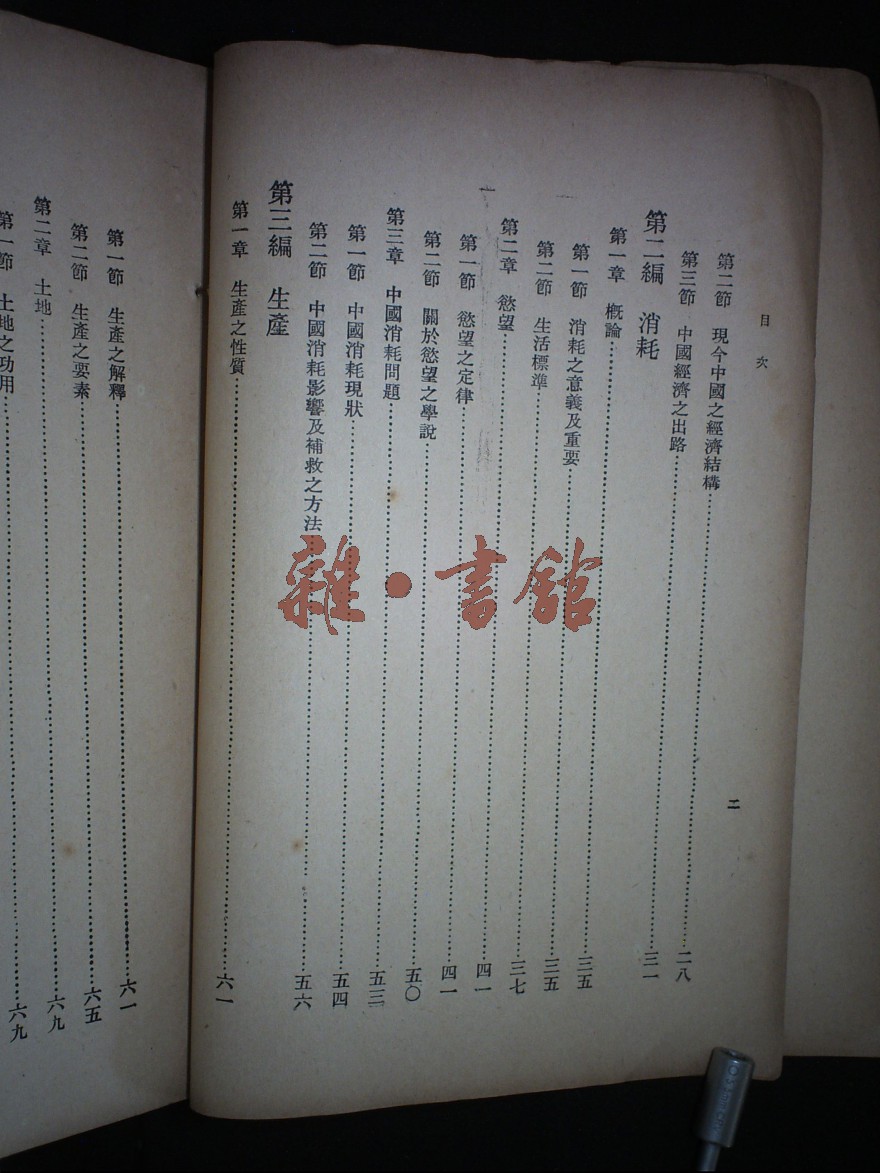 目次
二
第二節 現今中國之經濟結構……二八
第三節 中國經濟之出路……三一
第二編 消耗
第一章 概論……三五
第一節 消耗之意義及重要……三五
第二節 生活標準……三七
第二章 慾望……四一
第一節 慾望之定律……四一
第二節 關於慾望之學說……五〇
第三章 中國消耗問題……五三
第一節 中國消耗現狀……五四
第二節 中國消耗影響及補救之方法……五六
第三編 生產
第一章 生產之性質……六一
第一節 生產之解釋……六一
第二節 生產之要素……六五
第二章 土地……六九
第一節 土地之功用……六九
雜·書館